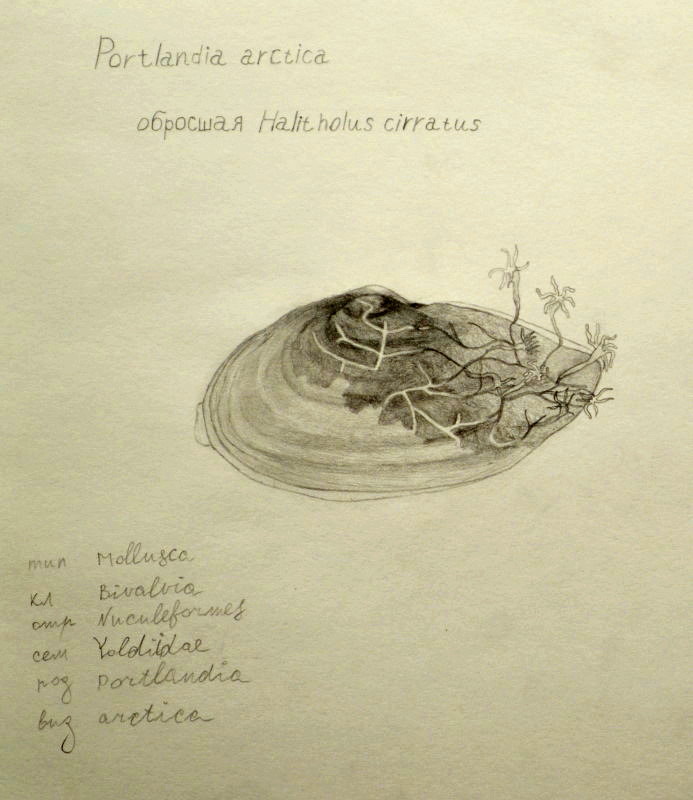 Portlandia arctica
обросшая Halitholus cirratus
тип Mollusca
кл Bivalvia
отр Nuculeformes
сем Yoldiidae
род Portlandia
вид arctica